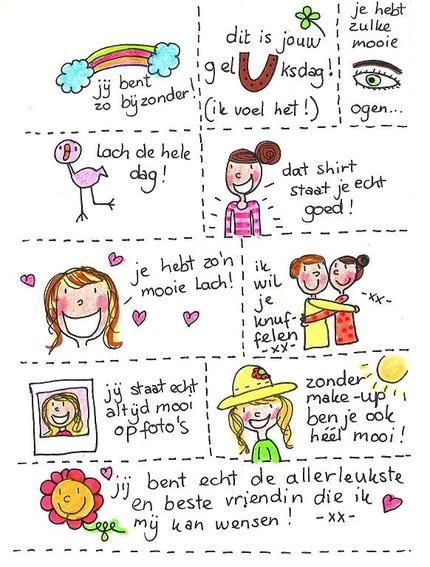 jij bent
zo bijzonder!
dit is jouw
gelUksdag!
(ik voel het!)
je hebt
zulke
mooie
ogen...
Lach de hele
dag!
dat shirt
staat je echt
goed!
je hebt zo'n
mooie Lach!
ik
wil
je
knuf-
felen
-xx-
-xx-
jij staat echt
altijd mooi
op foto's
zonder
make-up
ben je ook
héél mooi!
jij bent echt de allerleukste
en beste vriendin die ik
mij kan wensen! -xx-